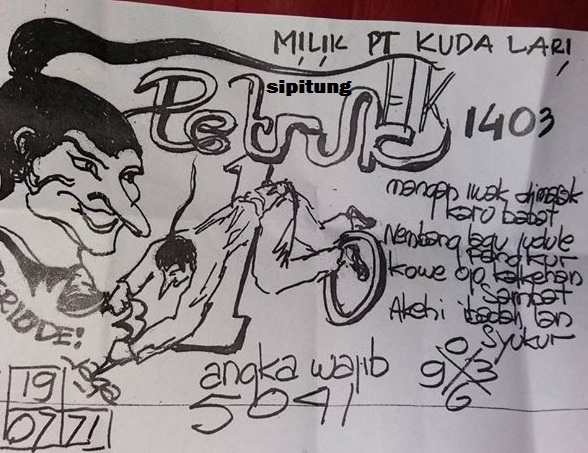 MILIK PT KUDA LARI
sipitung
Petruk
HK
1403
mangan iwak dimasak
karo babat
Nembang lagu judule
Pangkur
kowe ojo kakehan
Sambat
Akehi ibadah lan
Syukur
PERIODE!
angka wajib
5041
0
9 3
6
19
07 21